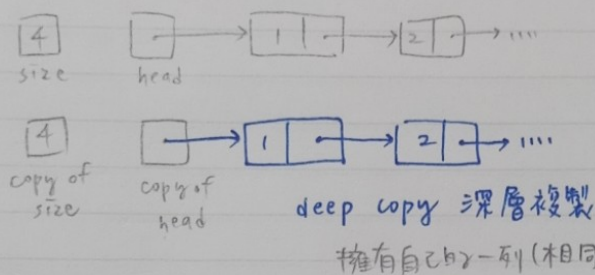 4 1 2 ....
size head
4 1 2 ....
copy of size copy of head
deep copy 深層複製
擁有自己的一列(相同